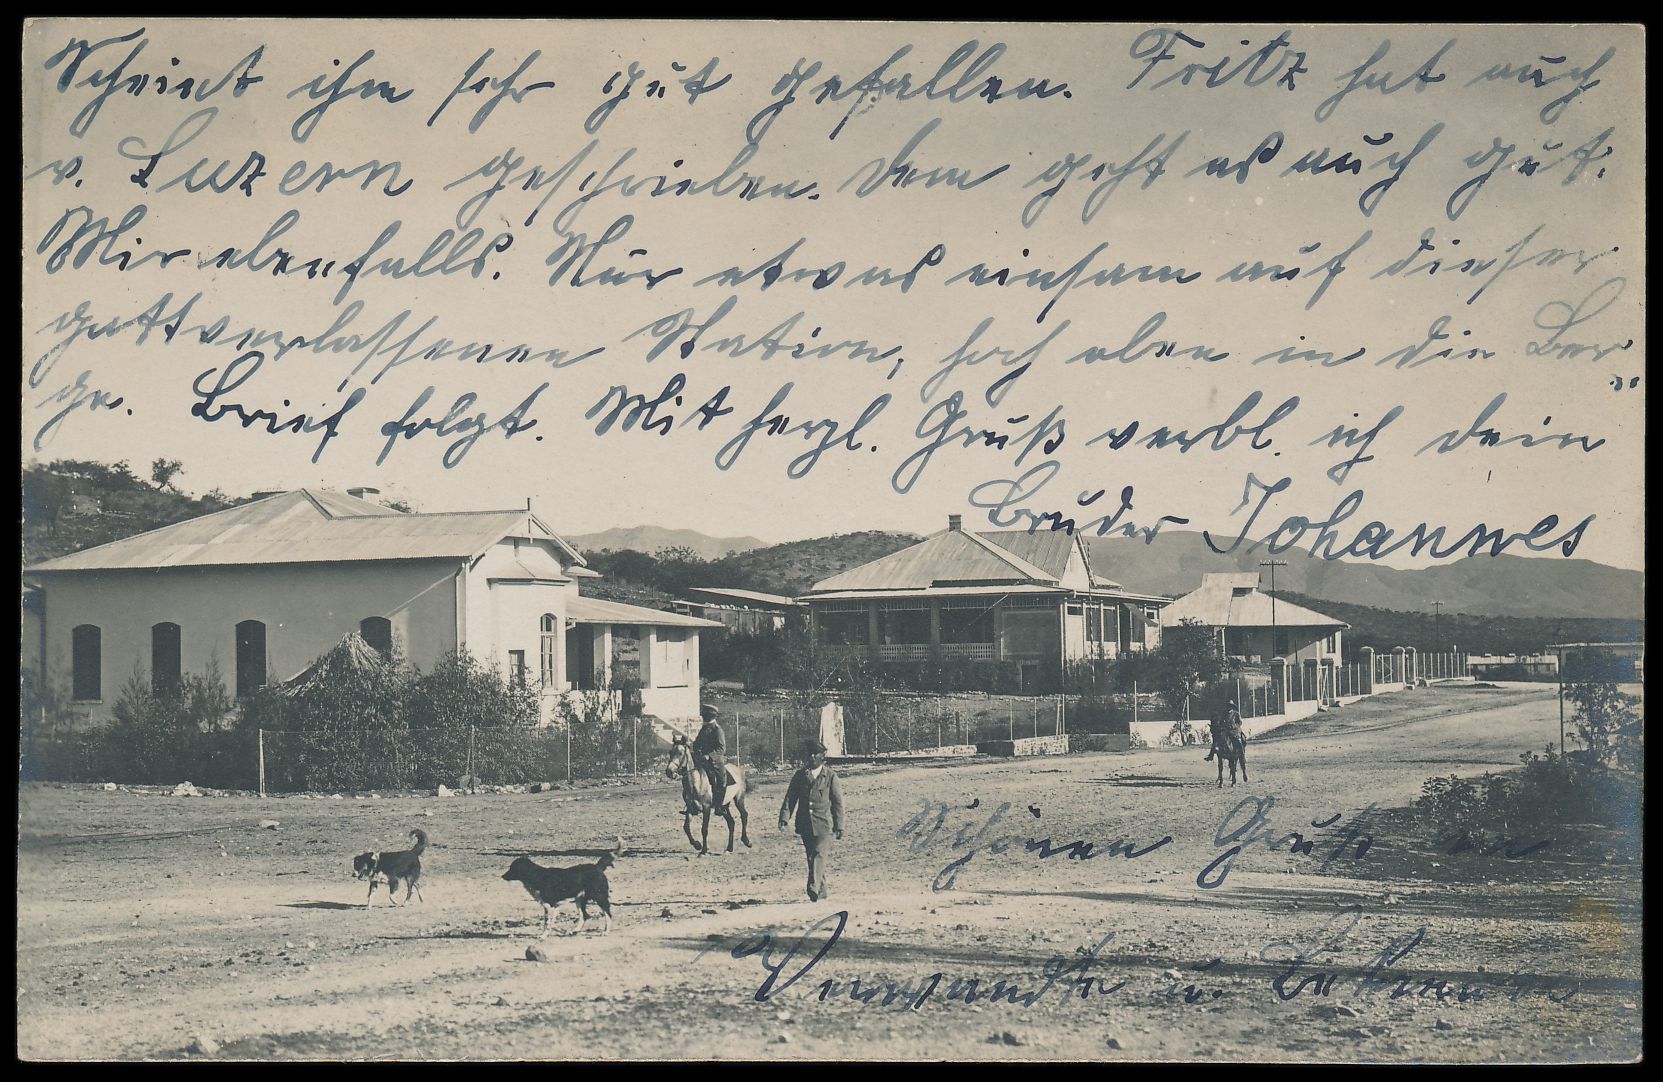 Scheint ihm sehr gut gefallen. Fritz hat auch
v. Luzern geschrieben. Dem geht es auch gut.
Mir ebenfalls. Nur etwas einsam auf dieser
gottverlassenen Station, hoch oben in die Ber„
ge. Brief folgt. Mit herzl. Gruß verbl. ich dein
Bruder Johannes
Schönen Gruß an
Verwandte u. Bekannte